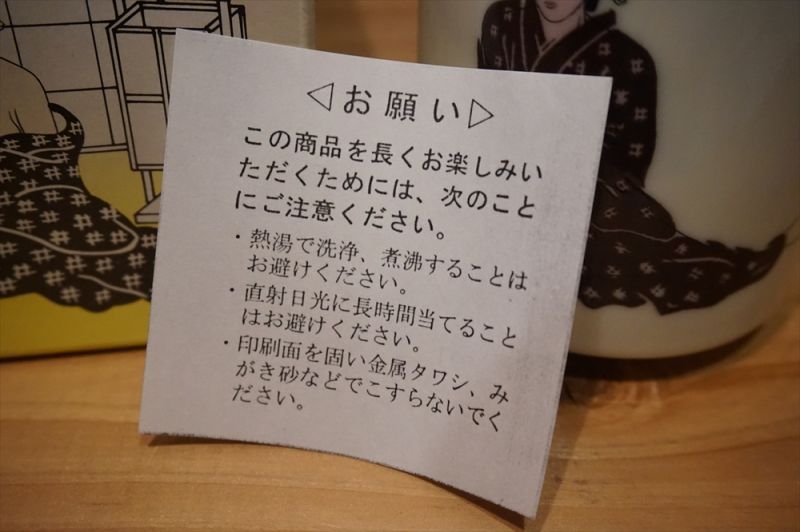 ◁お願い▷
この商品を長くお楽しみい
ただくためには、次のこと
にご注意ください。
・熱湯で洗浄、煮沸することは
お避けください。
・直射日光に長時間当てること
はお避けください。
・印刷面を固い金属タワシ、み
がき砂などでこすらないでく
ださい。